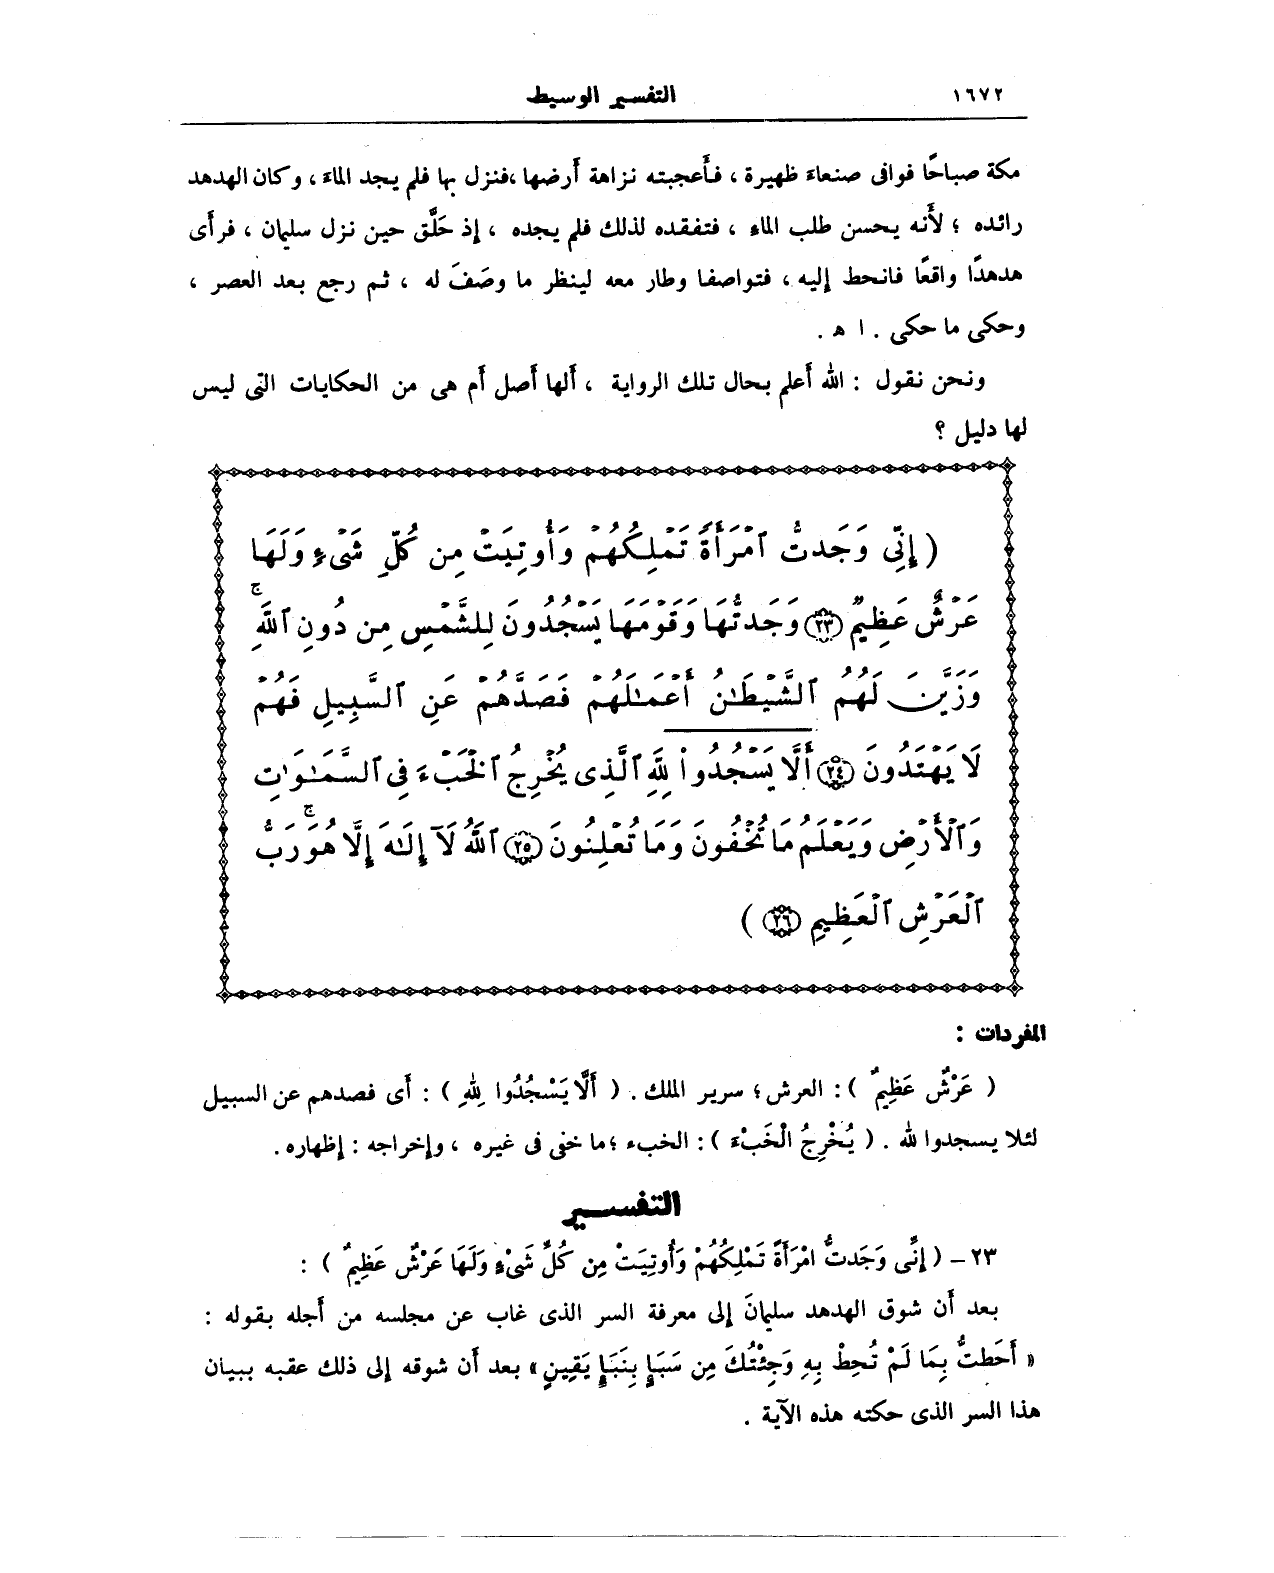 ١٦٧٢ التفسير الوسيط
مكة صباحًا فوافى صنعاء ظهيرة ، فأَعجبته نزاهة أَرضها ،فنزل بها فلم يجد الماءَ ، وكان الهدهد
رائده ؛ لأَنه يحسن طلب الماءِ ، فتفقده لذلك فلم يجده ، إذ حَلَّق حين نزل سليمان ، فرأَى
هدهدًا واقعًا فانحط إليه ، فتواصفا وطار معه لينظر ما وصَفَ له ، ثم رجع بعد العصر ،
وحكى ما حكى . ا هـ .
ونحن نقول : الله أَعلم بحال تلك الرواية ، أَلها أَصل أَم هى من الحكايات التى ليس
لها دليل ؟
( إِنِّى وَجَدتُّ ٱمْرَأَةً تَمْلِكُهُمْ وَأُوتِيَتْ مِن كُلِّ شَىْءٍ وَلَهَا
عَرْشٌ عَظِيمٌ ﴿٢٣﴾ وَجَدتُّهَا وَقَوْمَهَا يَسْجُدُونَ لِلشَّمْسِ مِن دُونِ ٱللَّهِ ۚ
وَزَيَّنَ لَهُمُ ٱلشَّيْطَـٰنُ أَعْمَـٰلَهُمْ فَصَدَّهُمْ عَنِ ٱلسَّبِيلِ فَهُمْ
لَا يَهْتَدُونَ ﴿٢٤﴾ أَلَّا يَسْجُدُوا۟ لِلَّهِ ٱلَّذِى يُخْرِجُ ٱلْخَبْءَ فِى ٱلسَّمَـٰوَٰتِ
وَٱلْأَرْضِ وَيَعْلَمُ مَا تُخْفُونَ وَمَا تُعْلِنُونَ ﴿٢٥﴾ ٱللَّهُ لَآ إِلَـٰهَ إِلَّا هُوَ ۚ رَبُّ
ٱلْعَرْشِ ٱلْعَظِيمِ ﴿٢٦﴾ )
المفردات :
( عَرْشٌ عَظِيمٌ ) : العرش ؛ سرير الملك . ( أَلَّا يَسْجُدُوا لِلهِ ) : أَى فصدهم عن السبيل
لئلا يسجدوا لله . ( يُخْرِجُ الْخَبْءَ ) : الخبء ؛ ما خفى فى غيره ، وإخراجه : إظهاره .
التفسير
٢٣ - ( إِنِّى وَجَدتُّ امْرَأَةً تَمْلِكُهُمْ وَأُوتِيَتْ مِن كُلِّ شَىْءٍ وَلَهَا عَرْشٌ عَظِيمٌ ) :
بعد أَن شوق الهدهد سليمانَ إلى معرفة السر الذى غاب عن مجلسه من أَجله بقوله :
« أَحَطتُّ بِمَا لَمْ تُحِطْ بِهِ وَجِئْتُكَ مِن سَبَإٍ بِنَبَإٍ يَقِينٍ » بعد أَن شوقه إلى ذلك عقبه ببيان
هذا السر الذى حكته هذه الآية .